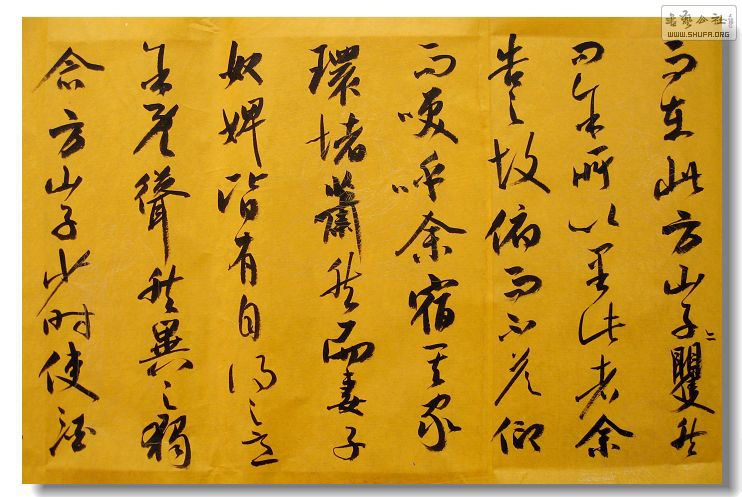 书艺公社
WWW.SHUFA.ORG
而在此方山子矍然
问余所以至此者余
告之故俯而不答仰
而咲呼余宿其家
環堵蕭然而妻子
奴婢皆有自得之意
余既聳然異之獨
念方山子少时使酒